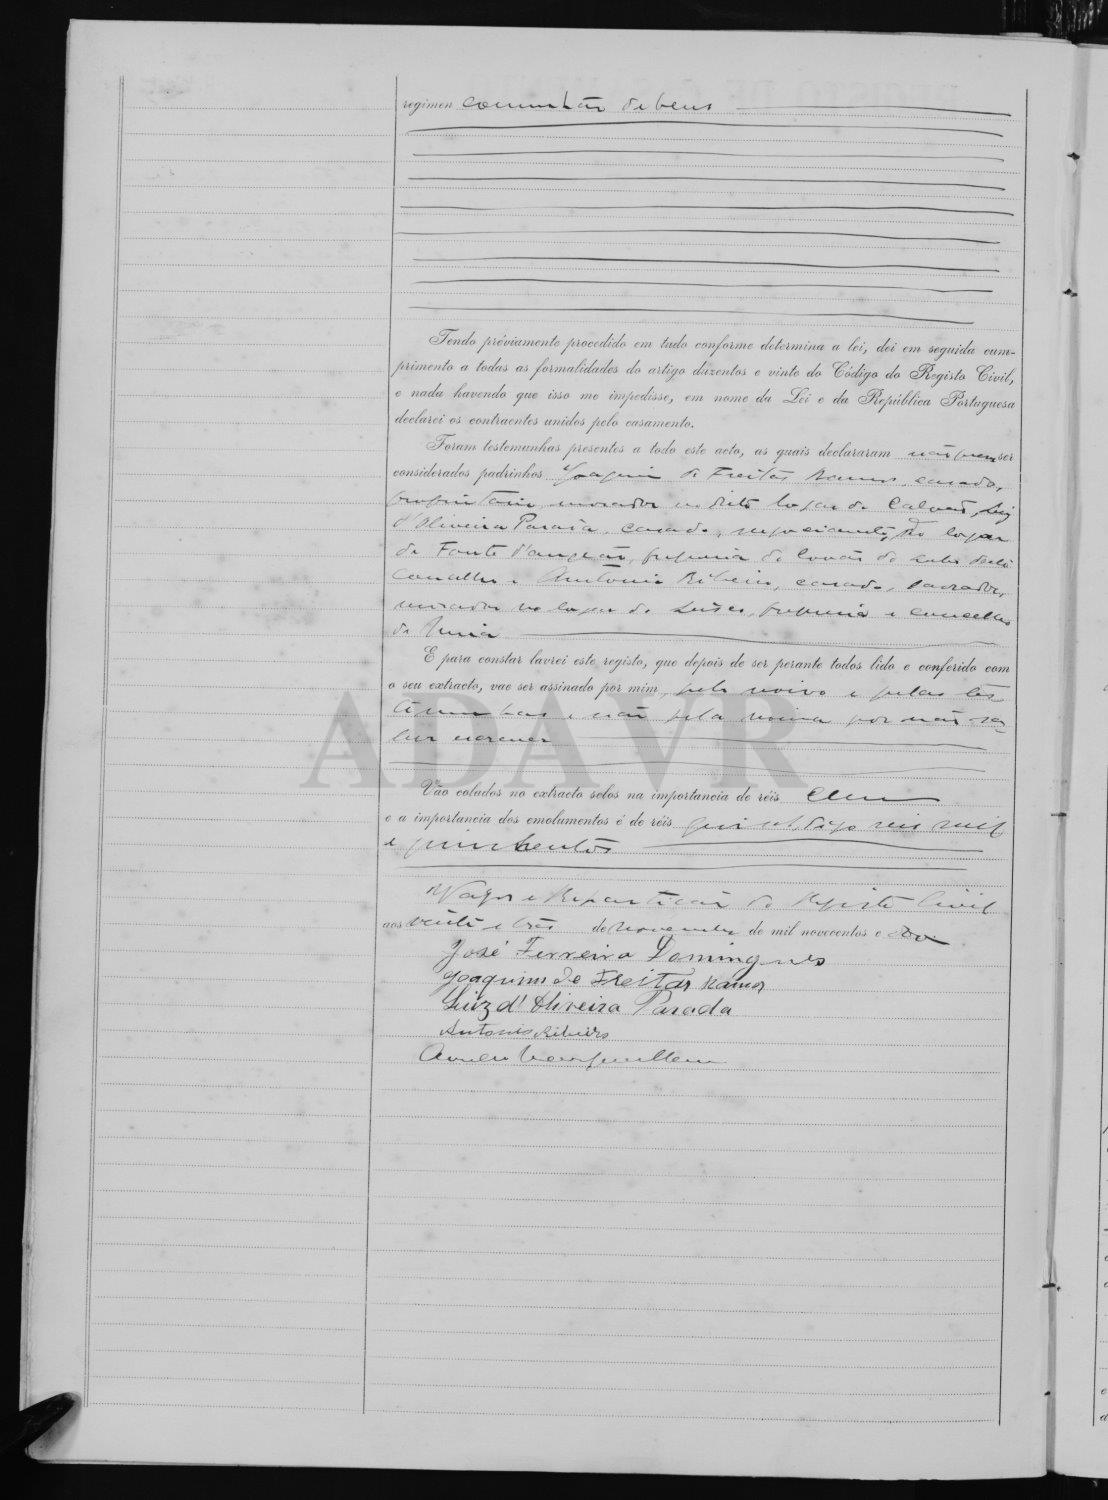 regimen comunhão de bens
Tendo préviamente procedido em tudo conforme determina a lei, dei em seguida cum-
primento a todas as formalidades do artigo duzentos e vinte do Código do Registo Civil,
e nada havendo que isso me impedisse, em nome da Lei e da República Portuguesa
declarei os contraentes unidos pelo casamento.
Foram testemunhas presentes a todo este acto, as quais declararam não quer ser
considerados padrinhos Joaquim de Freitas Ramos, casado,
proprietario, morador no dito lugar de Calvão, Luiz
d'Oliveira Parada, casado, negociante, do lugar
de Fonte d'Angeão, freguesia de Covão do Lobo deste
concelho e Antonio Ribeiro, casado, lavrador,
morador no lugar de freguesia e concelho
de
E para constar lavrei este registo, que depois de ser perante todos lido e conferido com
o seu extracto, vae ser assinado por mim, pelo noivo e pelas tes
temunhas e não pela noiva por não sa-
ber escrever
Vão colados no extracto selos na importancia de réis
e a importancia dos emolumentos é de réis digo seis mil
e quinhentos
Vagos e Repartição do Registo Civil
aos vinte e três de Novembro de mil novecentos e
José Ferreira Domingues
Joaquim de Freitas Ramos
Luiz d'Oliveira Parada
Antonio Ribeiro
ADAVR